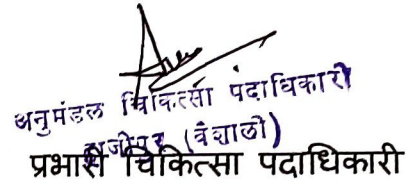 अनुमंडल चिकित्सा पदाधिकारी
(वैशाली)
प्रभारी चिकित्सा पदाधिकारी